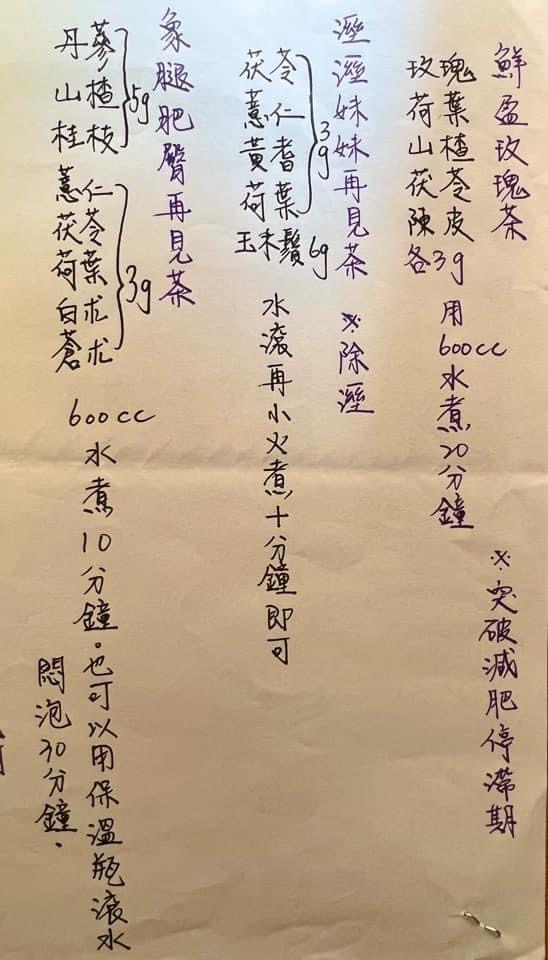 鮮盈玫瑰茶
※突破減肥停滯期
玫瑰
荷葉
山楂
茯苓
陳皮
各3g
用600cc水煮20分鐘
溼溼妹妹再見茶
※除溼
茯苓
薏仁
黃耆
荷葉
3g
玉米鬚6g
水滾再小火煮十分鐘即可
象腿肥臀再見茶
丹蔘
山楂
桂枝
5g
薏仁
茯苓
荷葉
白朮
蒼朮
3g
600cc水煮10分鐘。也可以用保溫瓶滾水
悶泡30分鐘.